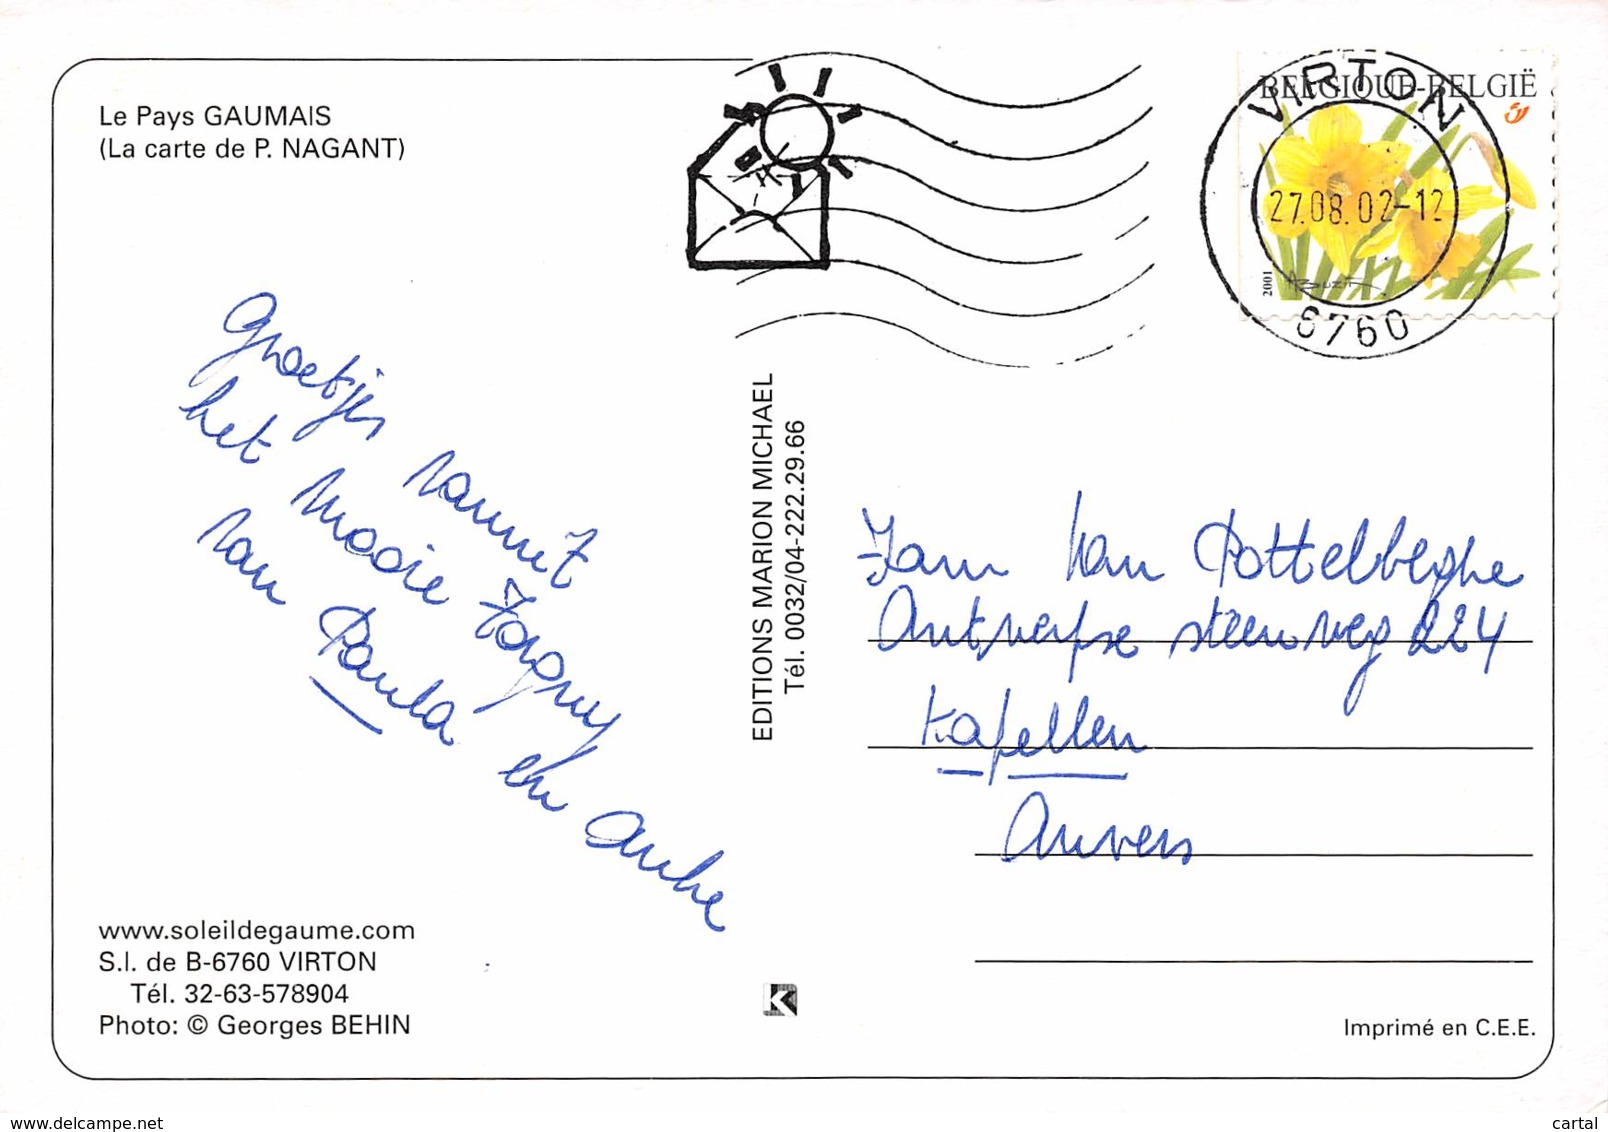 Le Pays GAUMAIS
(La carte de P. NAGANT)
BELGIQUE-BELGIË
VIRTON
27.08.02-12
6760
2001
Groetjes vanuit
het mooie Torgny
van Paula en
EDITIONS MARION MICHAEL
Tél. 0032/04-222.29.66
Van Pottelberghe
Antwerpse steenweg 224
Kapellen
Anvers
www.soleildegaume.com
S.I. de B-6760 VIRTON
Tél. 32-63-578904
Photo: © Georges BEHIN
K
Imprimé en C.E.E.
www.delcampe.net
cartal